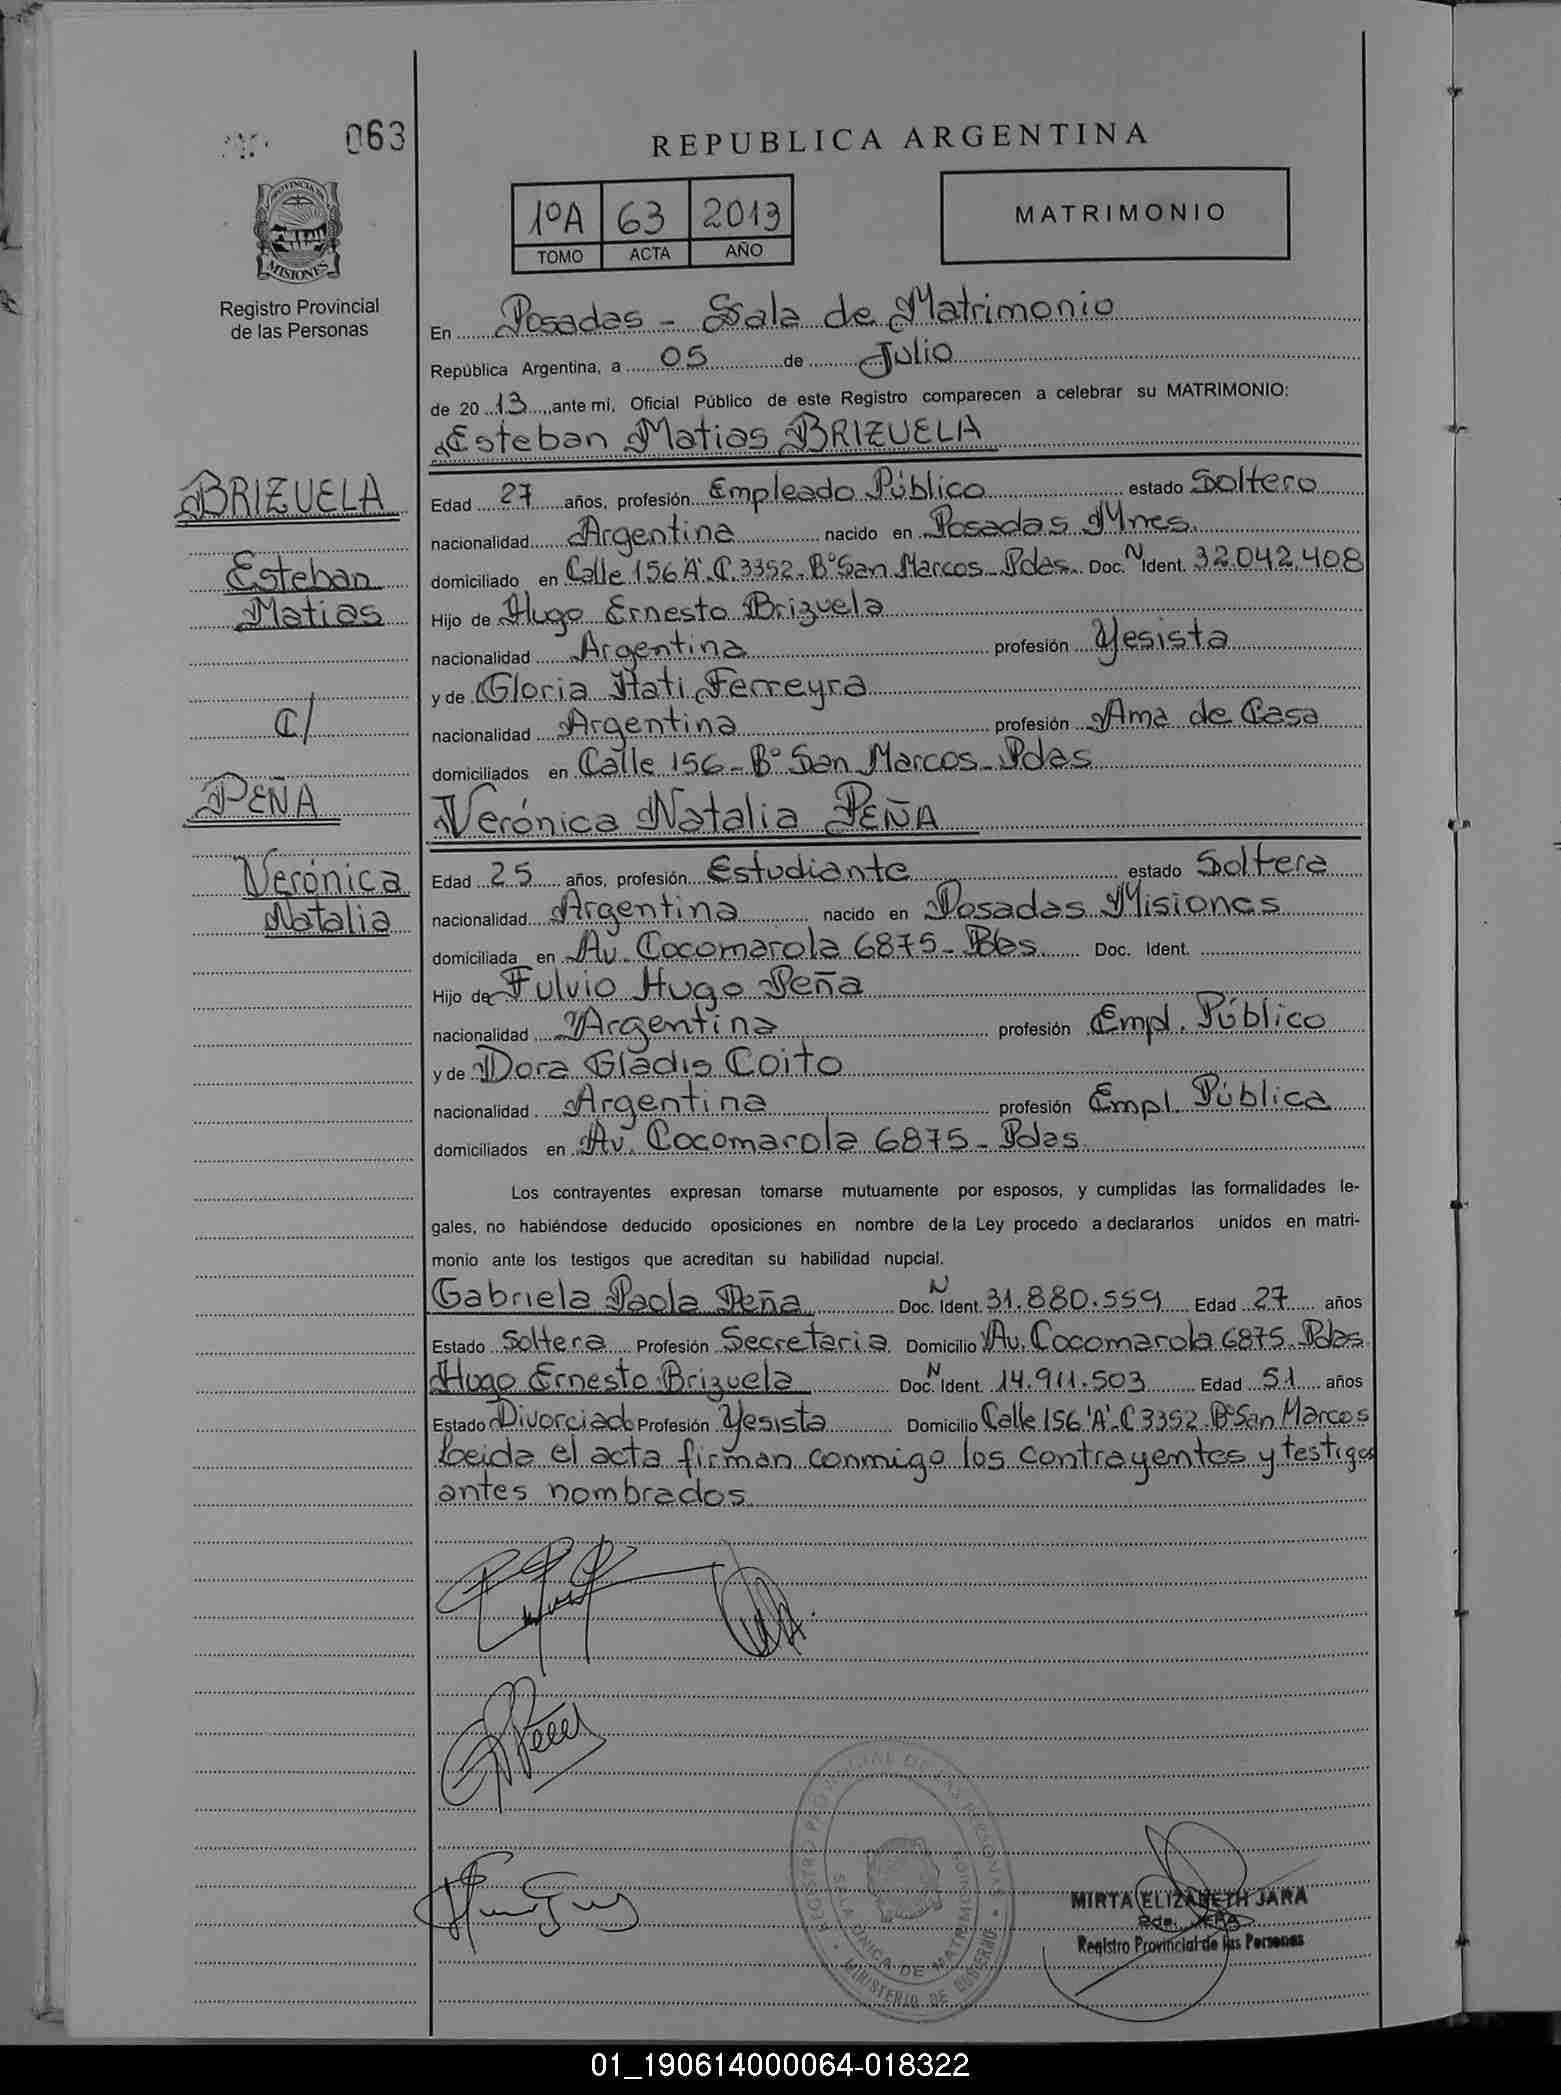 063
REPUBLICA ARGENTINA
1ºA 63 2013
TOMO ACTA AÑO
MATRIMONIO
PROVINCIA DE
MISIONES
Registro Provincial
de las Personas
En Posadas - Sala de Matrimonio
República Argentina, a 05 de Julio
de 20 13 ante mi, Oficial Público de este Registro comparecen a celebrar su MATRIMONIO:
Esteban Matias BRIZUELA
BRIZUELA
Esteban
Matias
C/
PEÑA
Verónica
Natalia
Edad 27 años, profesión Empleado Público estado Soltero
nacionalidad Argentina nacido en Posadas Mnes.
domiciliado en Calle 156 'A'. C. 3352 - Bº San Marcos - Pdas. Doc. N Ident. 32.042.408
Hijo de Hugo Ernesto Brizuela
nacionalidad Argentina profesión Yesista
y de Gloria Itati Ferreyra
nacionalidad Argentina profesión Ama de Casa
domiciliados en Calle 156 - Bº San Marcos - Pdas
Verónica Natalia PEÑA
Edad 25 años, profesión Estudiante estado Soltera
nacionalidad Argentina nacido en Posadas Misiones
domiciliada en Av. Cocomarola 6875 - Doc. Ident.
Hijo de Fulvio Hugo Peña
nacionalidad Argentina profesión Empl. Público
y de Dora Gladis Coito
nacionalidad Argentina profesión Empl. Pública
domiciliados en Av. Cocomarola 6875 - Pdas.
Los contrayentes expresan tomarse mutuamente por esposos, y cumplidas las formalidades le-
gales, no habiéndose deducido oposiciones en nombre de la Ley procedo a declararlos unidos en matri-
monio ante los testigos que acreditan su habilidad nupcial.
Gabriela Paola Peña Doc. N Ident. 31.880.559 Edad 27 años
Estado Soltera Profesión Secretaria Domicilio Av. Cocomarola 6875 - Pdas.
Hugo Ernesto Brizuela Doc. N Ident. 14.911.503 Edad 51 años
Estado Divorciado Profesión Yesista Domicilio Calle 156 'A'. C 3352 - Bº San Marcos
Leida el acta firman conmigo los contrayentes y testigos
antes nombrados.
REGISTRO PROVINCIAL DE LAS PERSONAS
SALA UNICA DE MATRIMONIOS
MINISTERIO DE GOBIERNO
MIRTA ELIZABETH JARA
2da. JEFA
Registro Provincial de las Personas
01_190614000064-018322